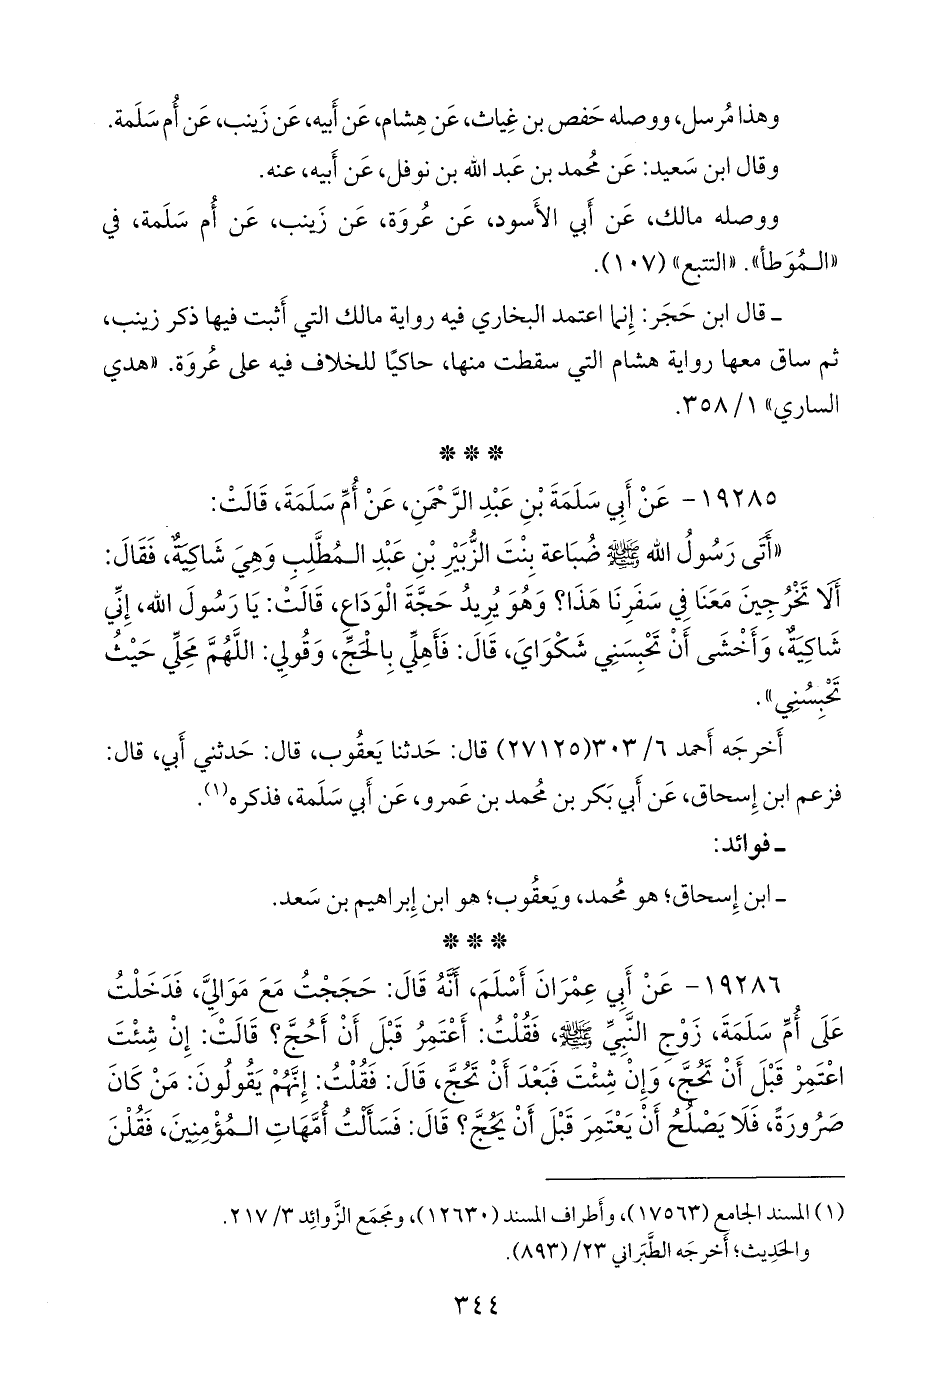 وهذا مُرسل، ووصله حَفص بن غِياث، عَن هِشام، عَن أَبيه، عَن زَينب، عَن أُم سَلَمة.
وقال ابن سَعيد: عَن مُحمد بن عَبد الله بن نوفل، عَن أَبيه، عنه.
ووصله مالك، عَن أَبي الأَسود، عَن عُروَة، عَن زَينب، عَن أُم سَلَمة، في
«الـمُوَطأ». «التتبع» (١٠٧).
ـ قال ابن حَجَر: إِنما اعتمد البخاري فيه رواية مالك التي أَثبت فيها ذكر زينب،
ثم ساق معها رواية هشام التي سقطت منها، حاكيًا للخلاف فيه على عُروَة. «هدي
الساري» ١/ ٣٥٨.
* * *
١٩٢٨٥- عَنْ أَبِي سَلَمَةَ بْنِ عَبْدِ الرَّحْمَنِ، عَنْ أُمِّ سَلَمَةَ، قَالَتْ:
«أَتَى رَسُولُ الله ﷺ ضُبَاعَة بِنْتَ الزُّبَيْرِ بْنِ عَبْدِ الـمُطَّلِبِ وَهِيَ شَاكِيَةٌ، فَقَالَ:
أَلَا تَخْرُجِينَ مَعَنَا فِي سَفَرِنَا هَذَا؟ وَهُوَ يُرِيدُ حَجَّةَ الْوَدَاعِ، قَالَتْ: يَا رَسُولَ الله، إِنِّي
شَاكِيَةٌ، وَأَخْشَى أَنْ تَحْبِسَنِي شَكْوَايَ، قَالَ: فَأَهِلِّي بِالْحَجِّ، وَقُولِي: اللَّهُمَّ مَحِلِّي حَيْثُ
تَحْبِسُنِي».
أَخرجَه أَحمد ٦/ ٣٠٣(٢٧١٢٥) قال: حَدثنا يَعقُوب، قال: حَدثني أَبي، قال:
فزعم ابن إِسحاق، عَن أَبي بَكر بن مُحمد بن عَمرو، عَن أَبي سَلَمة، فذكره(١).
ـ فوائد:
ـ ابن إِسحاق؛ هو مُحمد، ويَعقُوب؛ هو ابن إِبراهيم بن سَعد.
* * *
١٩٢٨٦- عَنْ أَبِي عِمْرَانَ أَسْلَمَ، أَنَّهُ قَالَ: حَجَجْتُ مَعَ مَوَالِيَّ، فَدَخَلْتُ
عَلَى أُمِّ سَلَمَةَ، زَوْجِ النَّبِيِّ ﷺ، فَقُلْتُ: أَعْتَمِرُ قَبْلَ أَنْ أَحُجَّ؟ قَالَتْ: إِنْ شِئْتَ
اعْتَمِرْ قَبْلَ أَنْ تَحُجَّ، وَإِنْ شِئْتَ فَبَعْدَ أَنْ تَحُجَّ، قَالَ: فَقُلْتُ: إِنَّهُمْ يَقُولُونَ: مَنْ كَانَ
صَرُورَةً، فَلَا يَصْلُحُ أَنْ يَعْتَمِرَ قَبْلَ أَنْ يَحُجَّ؟ قَالَ: فَسَأَلْتُ أُمَّهَاتِ الـمُؤْمِنِينَ، فَقُلْنَ
(١) المسند الجامع (١٧٥٦٣)، وأَطراف المسند (١٢٦٣٠)، ومَجمَع الزَّوائِد ٣/ ٢١٧.
والحَدِيث؛ أَخرجَه الطَّبَراني ٢٣/ (٨٩٣).
٣٤٤